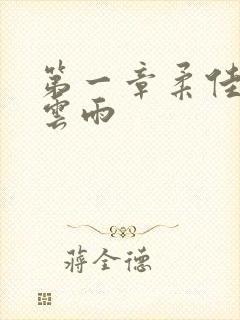 第一章柔佳
雲雨
蔣全德